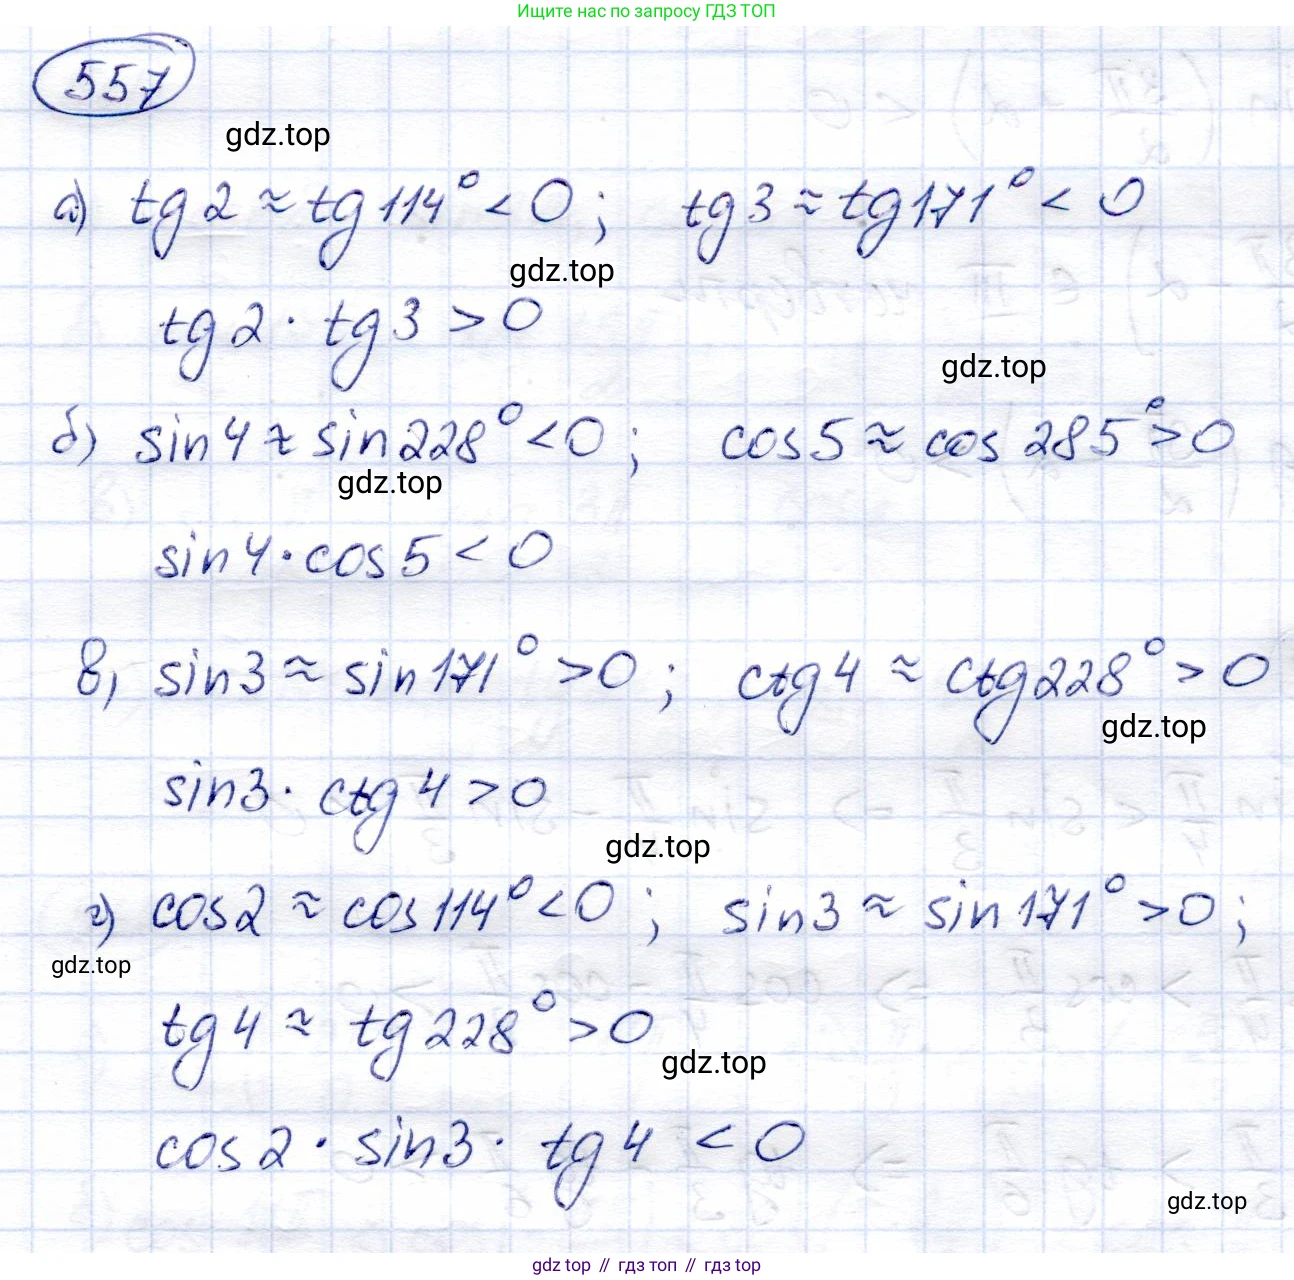 Ищите нас по запросу ГДЗ ТОП
557
gdz.top
а) tg 2 ≈ tg 114° < 0; tg 3 ≈ tg 171° < 0
gdz.top
tg 2 · tg 3 > 0
gdz.top
б) sin 4 ≈ sin 228° < 0; cos 5 ≈ cos 285° > 0
gdz.top
sin 4 · cos 5 < 0
в) sin 3 ≈ sin 171° > 0; ctg 4 ≈ ctg 228° > 0
gdz.top
sin 3 · ctg 4 > 0
gdz.top
г) cos 2 ≈ cos 114° < 0; sin 3 ≈ sin 171° > 0;
gdz.top
tg 4 ≈ tg 228° > 0
gdz.top
cos 2 · sin 3 · tg 4 < 0
gdz.top
gdz.top // гдз топ // гдз.top